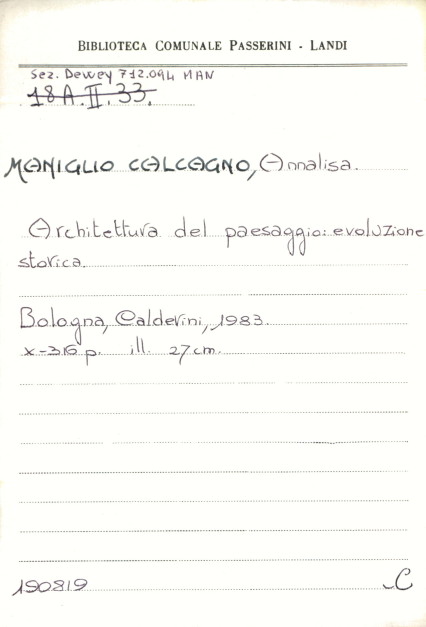 BIBLIOTECA COMUNALE PASSERINI - LANDI
Sez. Dewey 712.094 MAN
18A.II.33.
MANIGLIO CALCAGNO, Annalisa.
Architettura del paesaggio: evoluzione
storica.
Bologna, Calderini, 1983.
x-316 p. ill. 27 cm.
190819
C